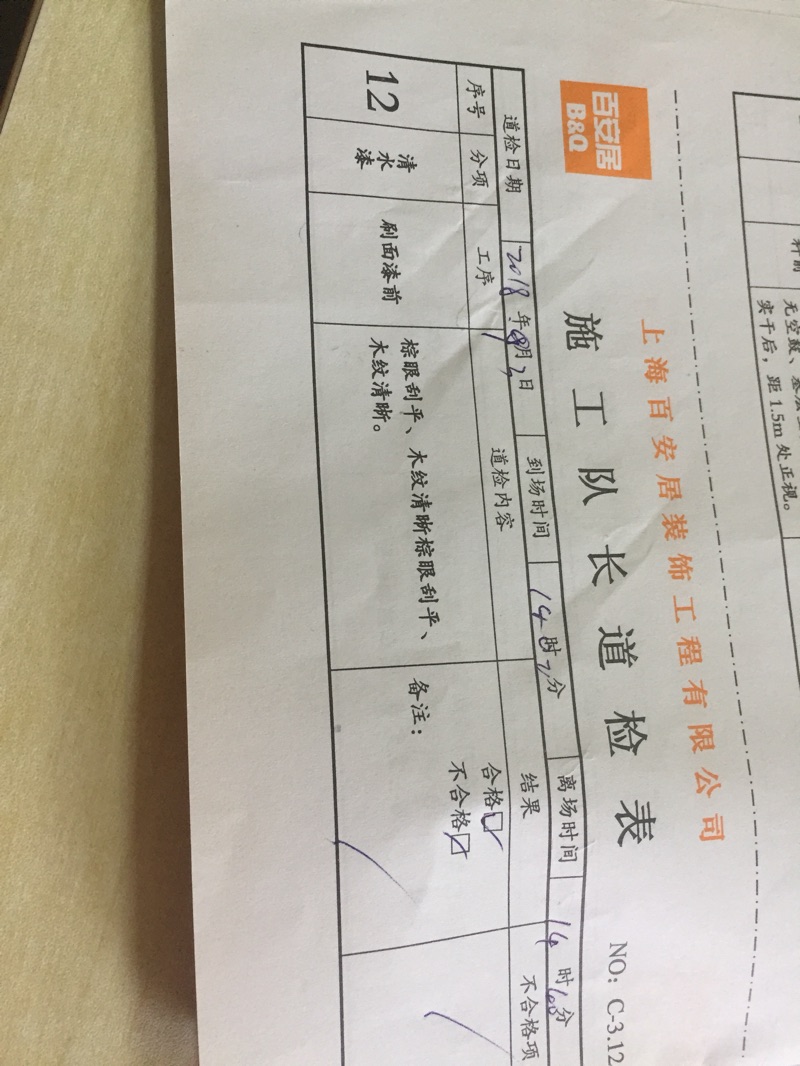 轩前
无空鼓、基层
实干后，距 1.5m 处正视。
上海百安居装饰工程有限公司
百安居
B&Q
施工队长道检表
NO: C-3.12
道检日期 2018 年 月 日 到场时间 14 时 分 离场时间 14 时 分
序号 分项 工序 道检内容 结果 不合格项
12 清水漆 刷面漆前
棕眼刮平、木纹清晰棕眼刮平、
木纹清晰。
合格☑
不合格☑
备注：